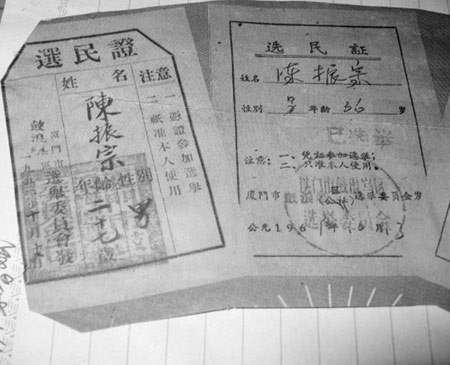 選民證
姓名
注意
一 憑證參加選舉
二 祇准本人使用
陳振宗
性別 男
年齡 二十七歲
廈門市
選舉委員會發
选民証
姓名 陈振宗
性别 男 年龄 36 岁
已选举
注意：一、凭証参加选举；
二、只准本人使用。
厦门市 区(公社) 选举委员会发
公元196 年 6月